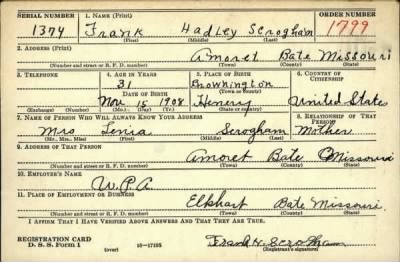 SERIAL NUMBER 1. NAME (Print) ORDER NUMBER
1374 Frank Hadley Scrogham 1799
(First) (Middle) (Last)
2. ADDRESS (Print)
Amoret Bate Missouri
(Number and street or R. F. D. number) (Town) (County) (State)
3. TELEPHONE 4. AGE IN YEARS 5. PLACE OF BIRTH 6. COUNTRY OF CITIZENSHIP
31 Brownington
DATE OF BIRTH (Town or county)
Nov. 15 1908 Henery United States
(Exchange) (Number) (Mo.) (Day) (Yr.) (State or country)
7. NAME OF PERSON WHO WILL ALWAYS KNOW YOUR ADDRESS 8. RELATIONSHIP OF THAT PERSON
Mrs Scrogham Mother
(Mr., Mrs., Miss) (First) (Middle) (Last)
9. ADDRESS OF THAT PERSON
Amoret Bate Missouri
(Number and street or R. F. D. number) (Town) (County) (State)
10. EMPLOYER'S NAME
W.P.A.
11. PLACE OF EMPLOYMENT OR BUSINESS
Elkhart Bate Missouri.
(Number and street or R. F. D. number) (Town) (County) (State)
I AFFIRM THAT I HAVE VERIFIED ABOVE ANSWERS AND THAT THEY ARE TRUE.
REGISTRATION CARD
D. S. S. FORM 1 (over) 16—17105
Frank H. Scrogham
(Registrant's signature)